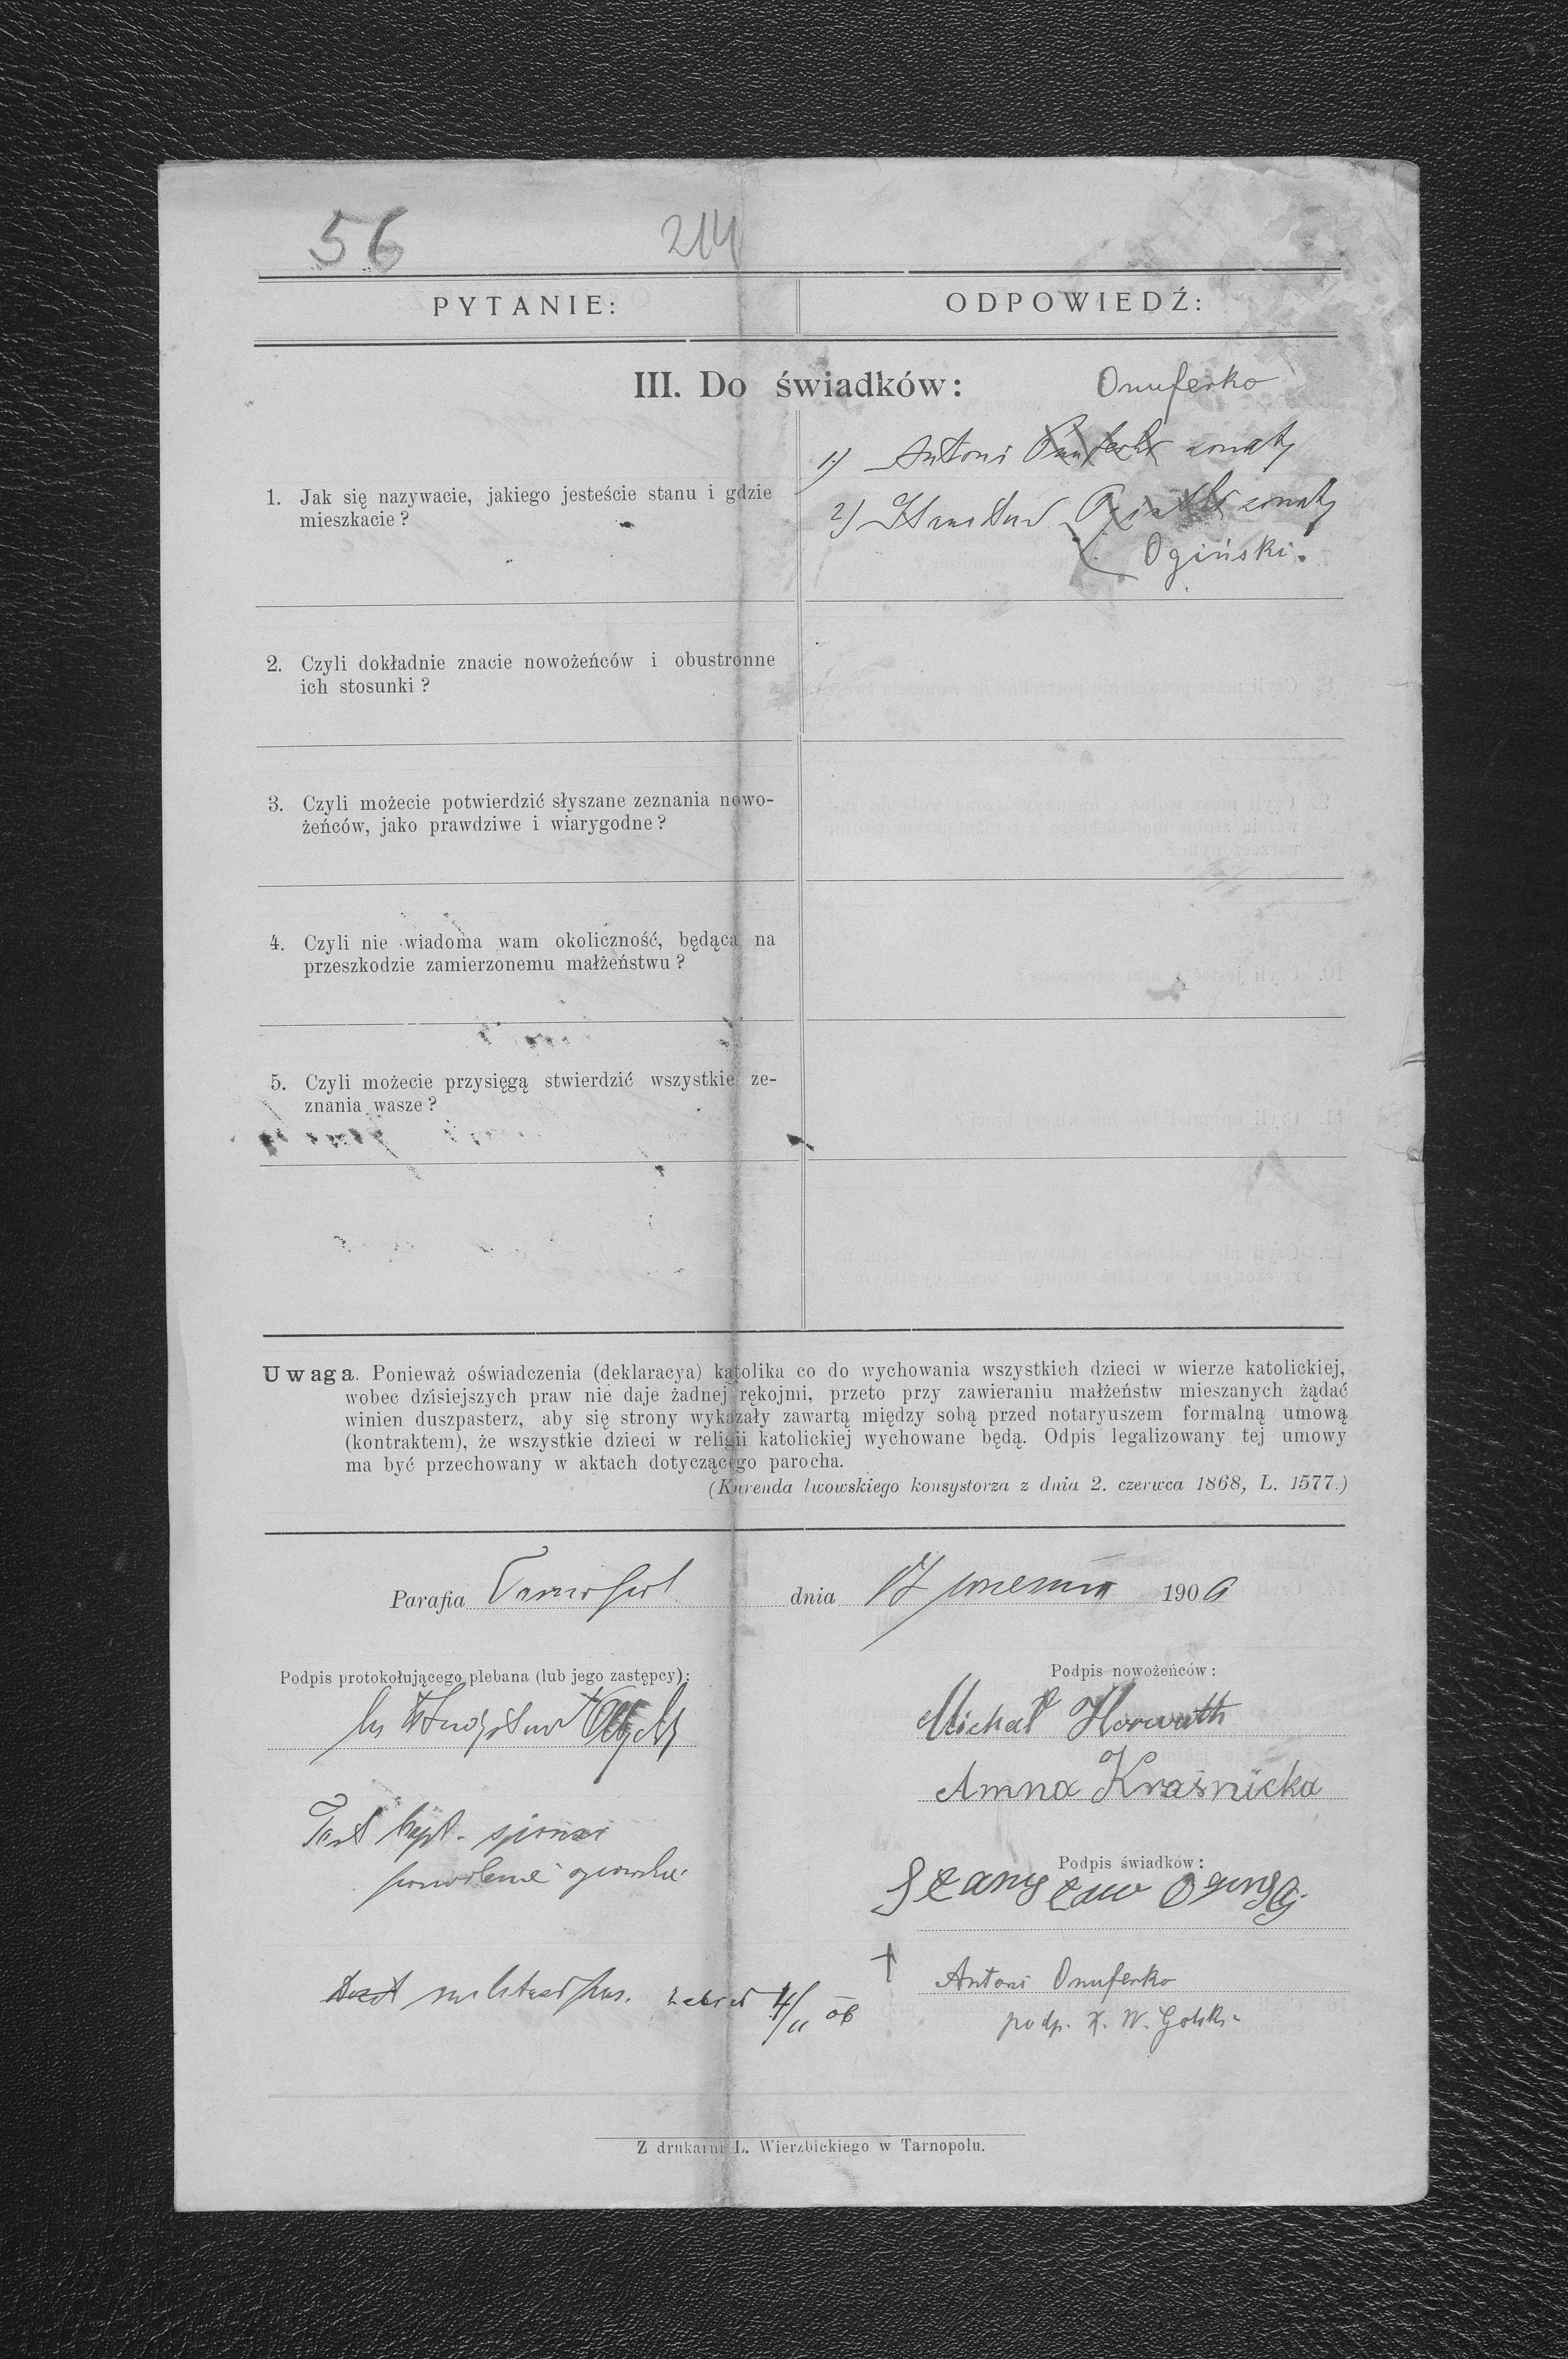 56 214
PYTANIE: ODPOWIEDŹ:
III. Do świadków: Onuferko
1) Antoni żonaty
1. Jak się nazywacie, jakiego jesteście stanu i gdzie
mieszkacie ?
2) Stanisław żonaty
Ogiński.
2. Czyli dokładnie znacie nowożeńców i obustronne
ich stosunki ?
3. Czyli możecie potwierdzić słyszane zeznania nowo-
żeńców, jako prawdziwe i wiarygodne ?
4. Czyli nie wiadoma wam okoliczność, będąca na
przeszkodzie zamierzonemu małżeństwu ?
5. Czyli możecie przysięgą stwierdzić wszystkie ze-
znania wasze ?
Uwaga. Ponieważ oświadczenia (deklaracya) katolika co do wychowania wszystkich dzieci w wierze katolickiej,
wobec dzisiejszych praw nie daje żadnej rękojmi, przeto przy zawieraniu małżeństw mieszanych żądać
winien duszpasterz, aby się strony wykazały zawartą między sobą przed notaryuszem formalną umową
(kontraktem), że wszystkie dzieci w religii katolickiej wychowane będą. Odpis legalizowany tej umowy
ma być przechowany w aktach dotyczącego parocha.
(Kurenda lwowskiego konsystorza z dnia 2. czerwca 1868, L. 1577.)
Parafia Tarnopol dnia 17 września 1906
Podpis protokołującego plebana (lub jego zastępcy):
Podpis nowożeńców :
Michał Horwath
Anna Kraśnicka
Test bapt.
pozwolenie
Podpis świadków :
Stanysław
† Antoni Onuferko
zabrał 4/11 06
podp. X. W.
Z drukarni L. Wierzbickiego w Tarnopolu.